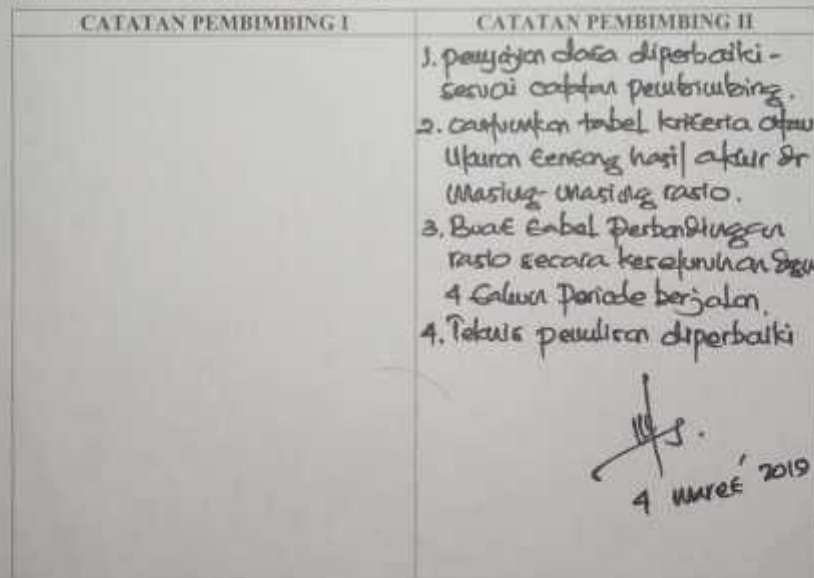 CATATAN PEMBIMBING I
CATATAN PEMBIMBING II
1. penyajian data diperbaiki -
sesuai catatan pembimbing.
2. cantumkan tabel kriteria atau
Ukuran tentang hasil akhir dr
masing-masing rasio.
3. Buat tabel Perbandingan
rasio secara keseluruhan dgn
4 tahun Periode berjalan.
4. Teknis penulisan diperbaiki
4 maret 2019